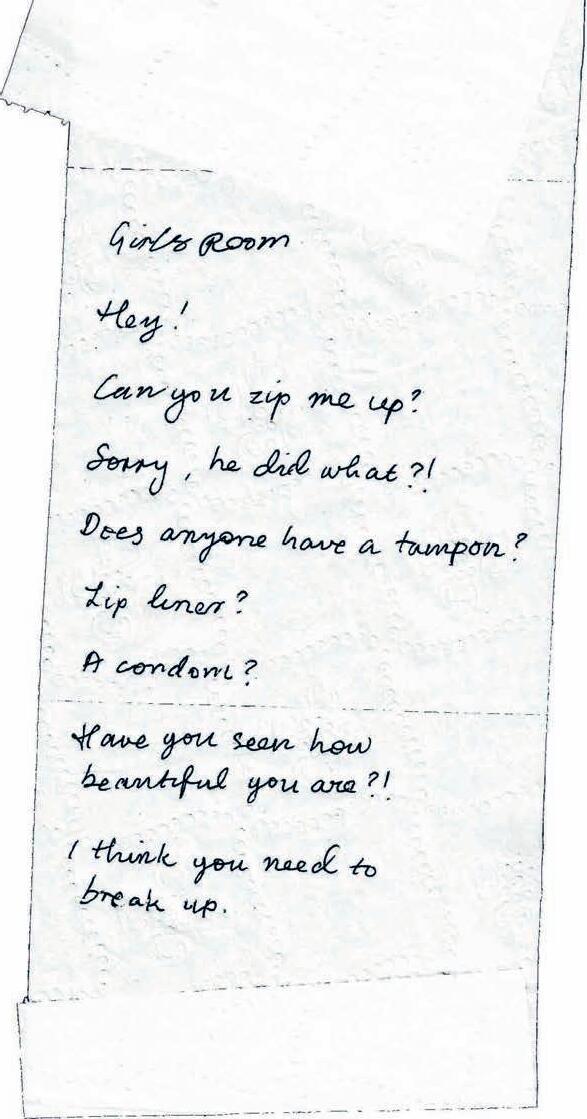 Girls Room
Hey!
Can you zip me up?
Sorry, he did what?!
Does anyone have a tampon?
Lip liner?
A condom?
Have you seen how
beautiful you are?!
I think you need to
break up.